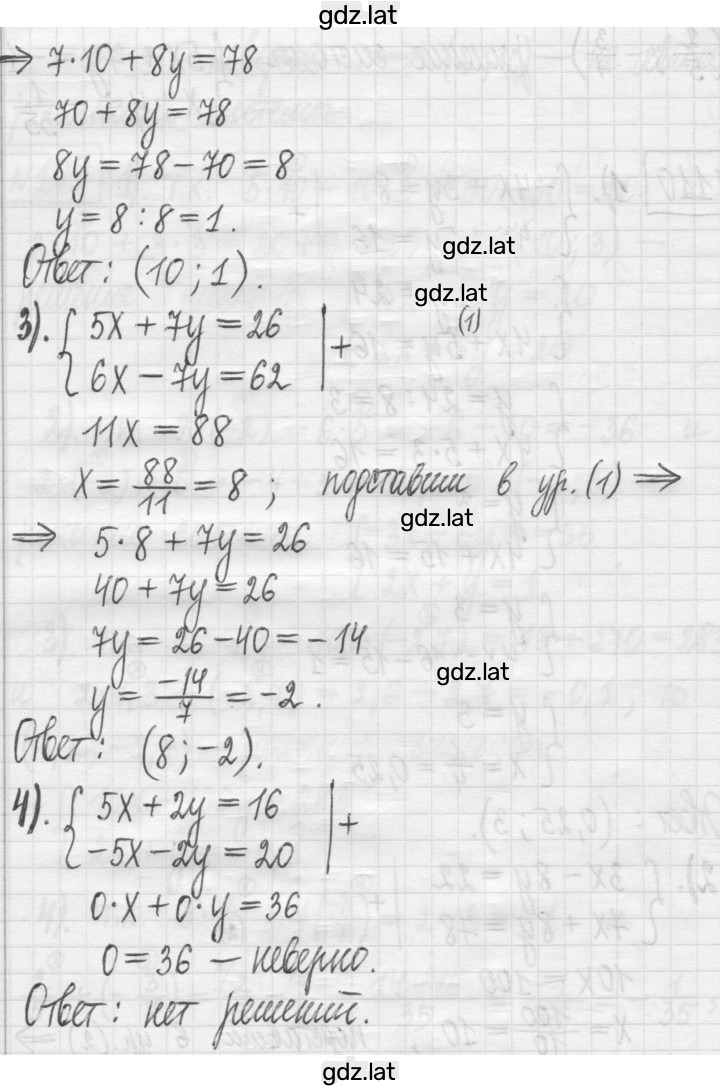 gdz.lat
⇒ 7·10 + 8y = 78
70 + 8y = 78
8y = 78 − 70 = 8
y = 8 : 8 = 1.
gdz.lat
Ответ: (10 ; 1).
gdz.lat
3). { 5x + 7y = 26 | + (1)
6x − 7y = 62
11x = 88
x = 88/11 = 8 ; подставим в ур. (1) ⇒
gdz.lat
⇒ 5·8 + 7y = 26
40 + 7y = 26
7y = 26 − 40 = −14
gdz.lat
y = −14/7 = −2 .
Ответ: (8 ; −2).
4). { 5x + 2y = 16 | +
−5x − 2y = 20
0·x + 0·y = 36
0 = 36 — неверно.
Ответ: нет решений.
gdz.lat